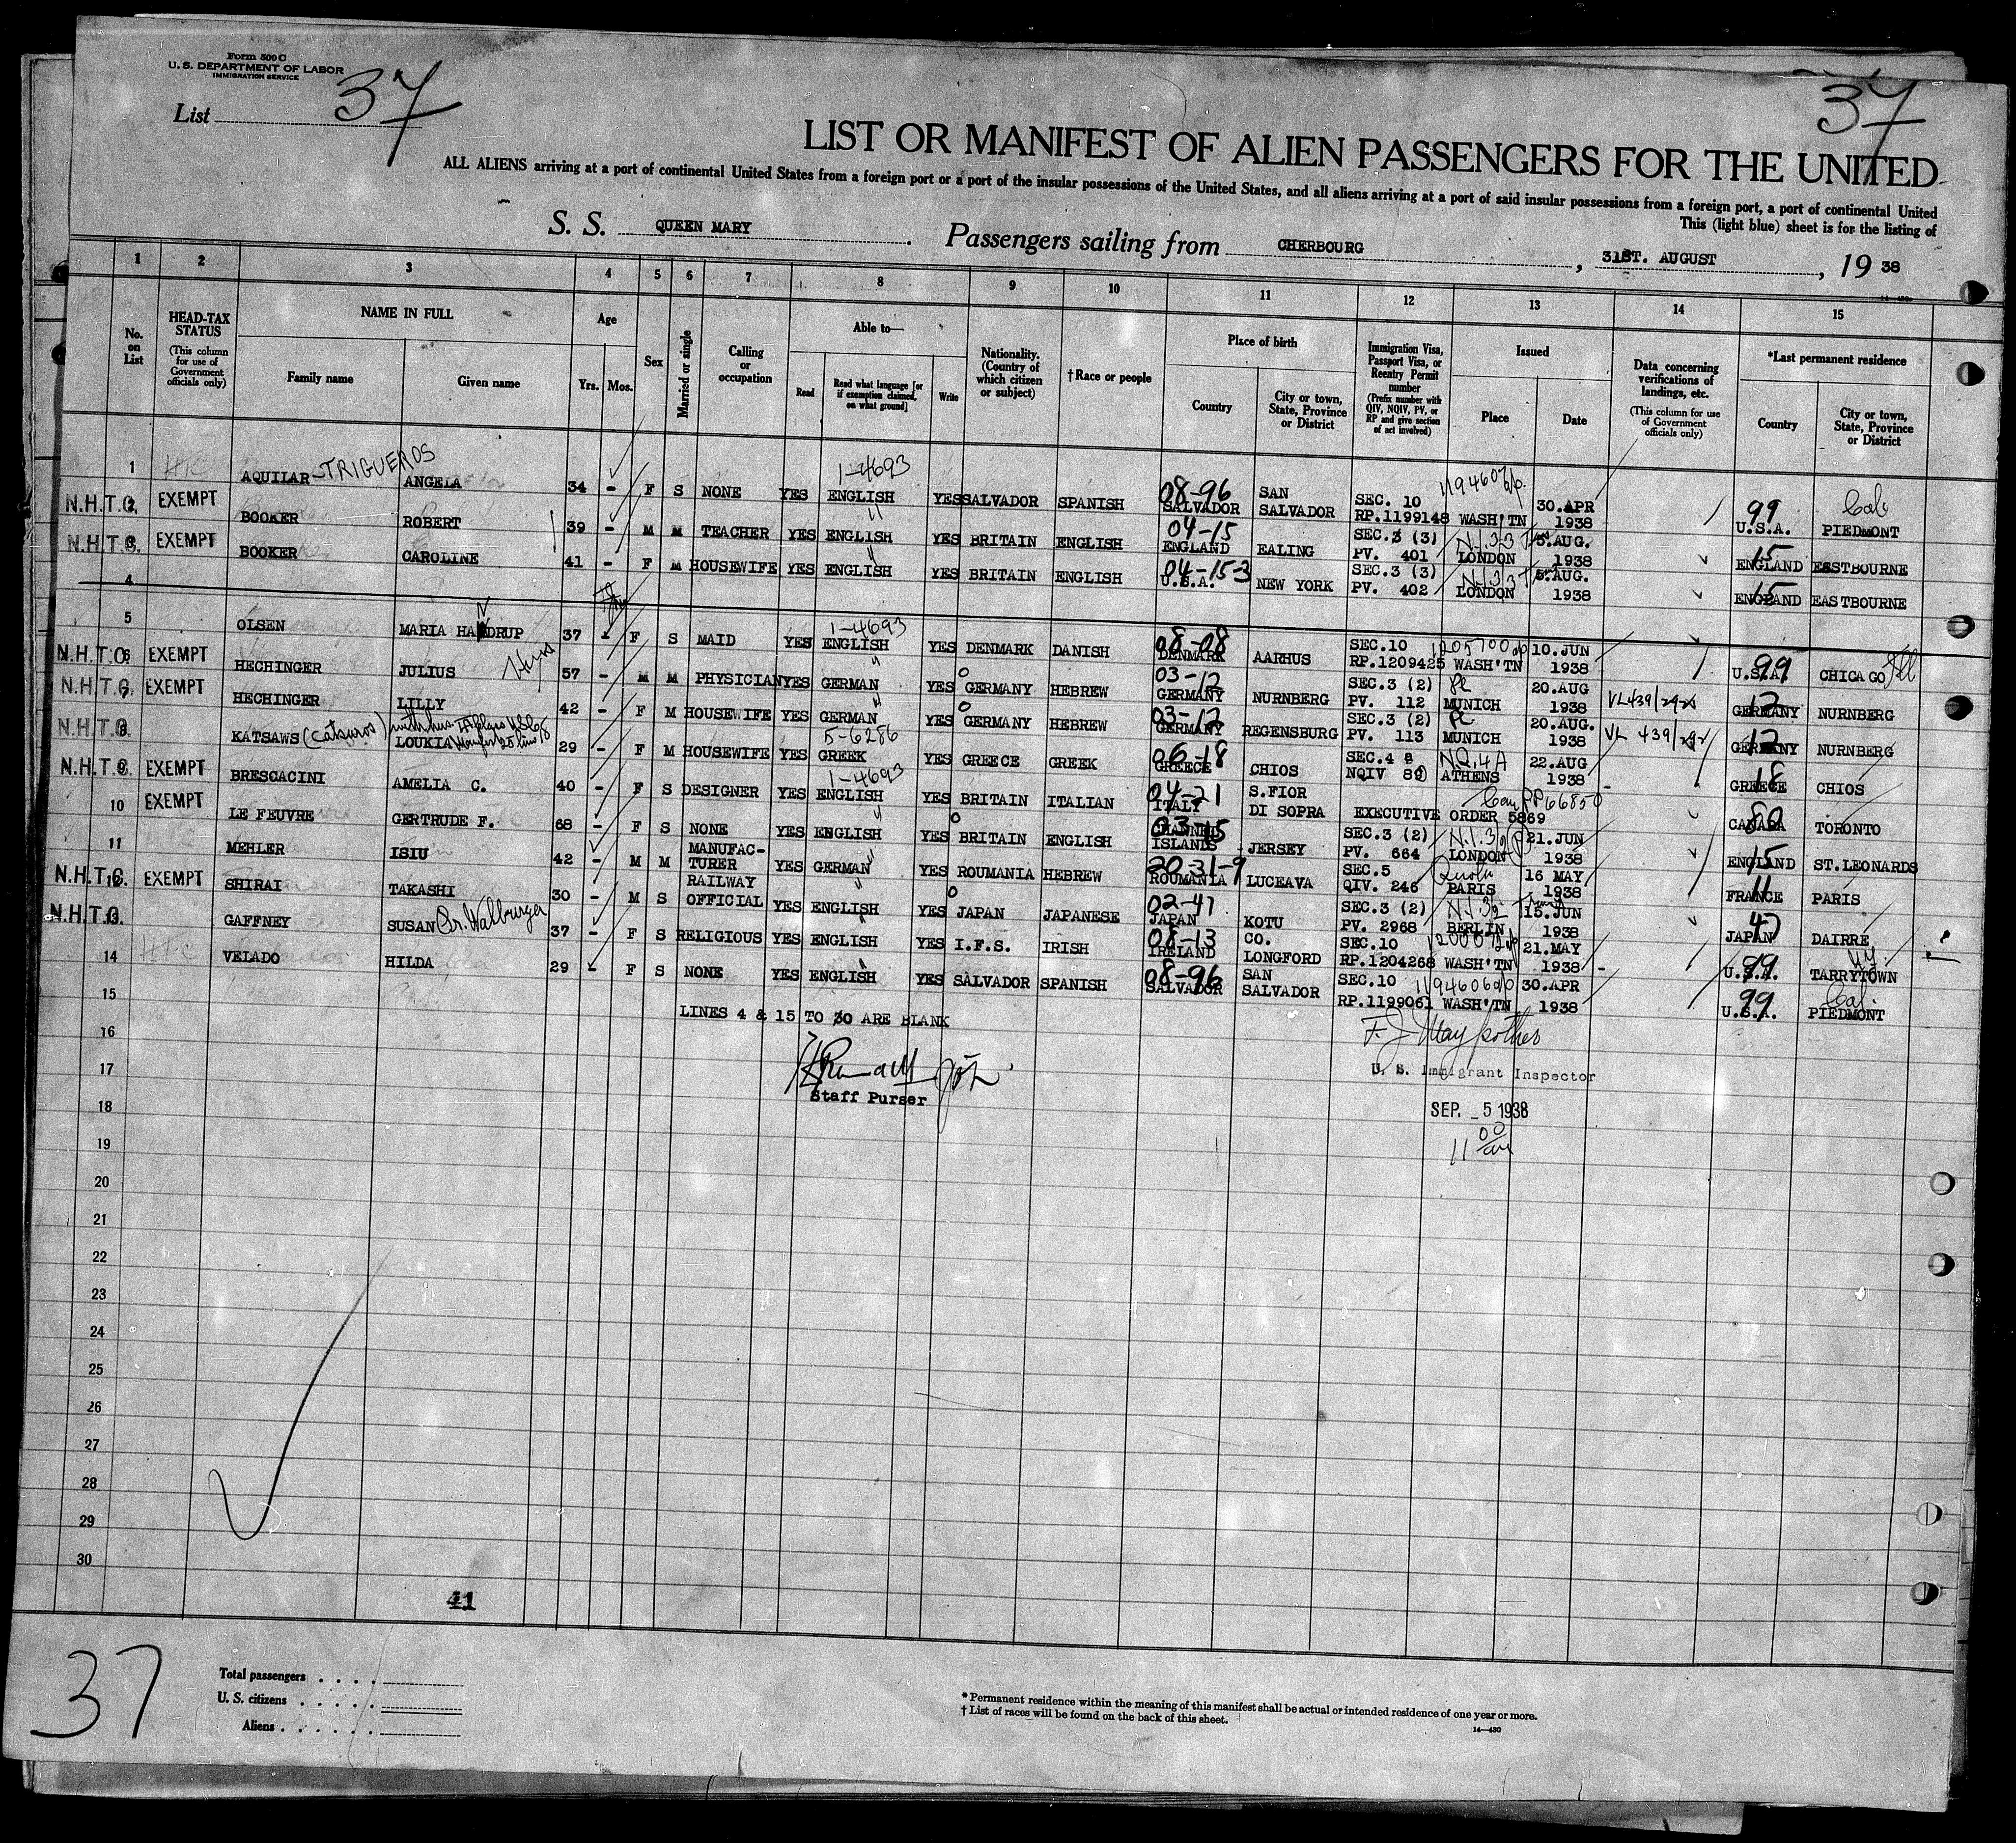 Form 500 C
U. S. DEPARTMENT OF LABOR
IMMIGRATION SERVICE
List 37
37
LIST OR MANIFEST OF ALIEN PASSENGERS FOR THE UNITED
ALL ALIENS arriving at a port of continental United States from a foreign port or a port of the insular possessions of the United States, and all aliens arriving at a port of said insular possessions from a foreign port, a port of continental United
This (light blue) sheet is for the listing of
S. S. QUEEN MARY. Passengers sailing from CHERBOURG, 31ST. AUGUST, 19 38
1 2 3 4 5 6 7 8 9 10 11 12 13 14 15
No. on List
HEAD-TAX STATUS
(This column for use of Government officials only)
NAME IN FULL
Family name
Given name
Age
Yrs. Mos.
Sex
Married or single
Calling or occupation
Able to—
Read
Read what language [or if exemption claimed, on what ground]
Write
Nationality. (Country of which citizen or subject)
†Race or people
Place of birth
Country
City or town, State, Province or District
Immigration Visa, Passport Visa, or Reentry Permit number
(Prefix number with QIV, NQIV, PV, or RP and give section of act involved)
Issued
Place
Date
Data concerning verifications of landings, etc.
(This column for use of Government officials only)
*Last permanent residence
Country
City or town, State, Province or District
1 AQUILAR-STRIGUEROS ANGELA 34 - F S NONE YES 1-4693 ENGLISH YES SALVADOR SPANISH 08-96 SALVADOR SAN SALVADOR SEC. 10 RP.1199148 WASH'TN 30.APR 1938 99 U.S.A. Cal PIEDMONT
N.H.T.C. 2 EXEMPT BOOKER ROBERT 39 - M M TEACHER YES ENGLISH YES BRITAIN ENGLISH 04-15 ENGLAND EALING SEC.3 (3) PV. 401 LONDON 5.AUG. 1938 15 ENGLAND EASTBOURNE
N.H.T.C. 3 EXEMPT BOOKER CAROLINE 41 - F M HOUSEWIFE YES ENGLISH YES BRITAIN ENGLISH 04-15-3 U.S.A. NEW YORK SEC.3 (3) PV. 402 LONDON 5.AUG. 1938 15 ENGLAND EASTBOURNE
4
5 OLSEN MARIA HANDRUP 37 - F S MAID YES 1-4693 ENGLISH YES DENMARK DANISH 08-08 DENMARK AARHUS SEC.10 RP.1209425 WASH'TN 10.JUN 1938 99 U.S.A. CHICAGO Ill
N.H.T.C. 6 EXEMPT HECHINGER JULIUS 57 - M M PHYSICIAN YES GERMAN YES GERMANY HEBREW 03-12 GERMANY NURNBERG SEC.3 (2) PV. 112 MUNICH 20.AUG 1938 12 GERMANY NURNBERG
N.H.T.C. 7 EXEMPT HECHINGER LILLY 42 - F M HOUSEWIFE YES GERMAN YES GERMANY HEBREW 03-12 GERMANY REGENSBURG SEC.3 (2) PV. 113 MUNICH 20.AUG. 1938 12 GERMANY NURNBERG
N.H.T.C. 8 KATSAWS (Catsuros) LOUKIA 29 - F M HOUSEWIFE YES 5-6286 GREEK YES GREECE GREEK 06-18 GREECE CHIOS SEC.4 NQIV 89 ATHENS 22.AUG 1938 18 GREECE CHIOS
N.H.T.C. 9 EXEMPT BRESCACINI AMELIA C. 40 - F S DESIGNER YES 1-4693 ENGLISH YES BRITAIN ITALIAN 04-21 ITALY S.FIOR DI SOPRA EXECUTIVE ORDER 5869 Can PP 66850 80 CANADA TORONTO
10 EXEMPT LE FEUVRE GERTRUDE F. 68 - F S NONE YES ENGLISH YES BRITAIN ENGLISH 03-15 CHANNEL ISLANDS JERSEY SEC.3 (2) PV. 664 LONDON 21.JUN 1938 15 ENGLAND ST.LEONARDS
11 MEHLER ISIU 42 - M M MANUFAC-TURER YES GERMAN YES ROUMANIA HEBREW 20-31-9 ROUMANIA LUCEAVA SEC.5 QIV. 246 Quota PARIS 16 MAY 1938 11 FRANCE PARIS
N.H.T.C. 12 EXEMPT SHIRAI TAKASHI 30 - M S RAILWAY OFFICIAL YES ENGLISH YES JAPAN JAPANESE 02-47 JAPAN KOTU SEC.3 (2) PV. 2968 BERLIN 15.JUN 1938 47 JAPAN DAIRRE
N.H.T.C. 13 GAFFNEY SUSAN Sr. Walburger 37 - F S RELIGIOUS YES ENGLISH YES I.F.S. IRISH 08-13 IRELAND CO. LONGFORD SEC.10 RP.1204268 WASH'TN 21.MAY 1938 99 U.S.A. NY TARRYTOWN
14 VELADO HILDA 29 - F S NONE YES ENGLISH YES SALVADOR SPANISH 08-96 SALVADOR SAN SALVADOR SEC.10 RP.1199061 WASH'TN 30.APR 1938 99 U.S.A. Cal. PIEDMONT
15
LINES 4 & 15 TO 30 ARE BLANK
16
17
Staff Purser
U. S. Immigrant Inspector
18
SEP. 5 1938
19
11 00 am
20
21
22
23
24
25
26
27
28
29
30
41
37
Total passengers
U. S. citizens
Aliens
* Permanent residence within the meaning of this manifest shall be actual or intended residence of one year or more.
† List of races will be found on the back of this sheet.
14—430